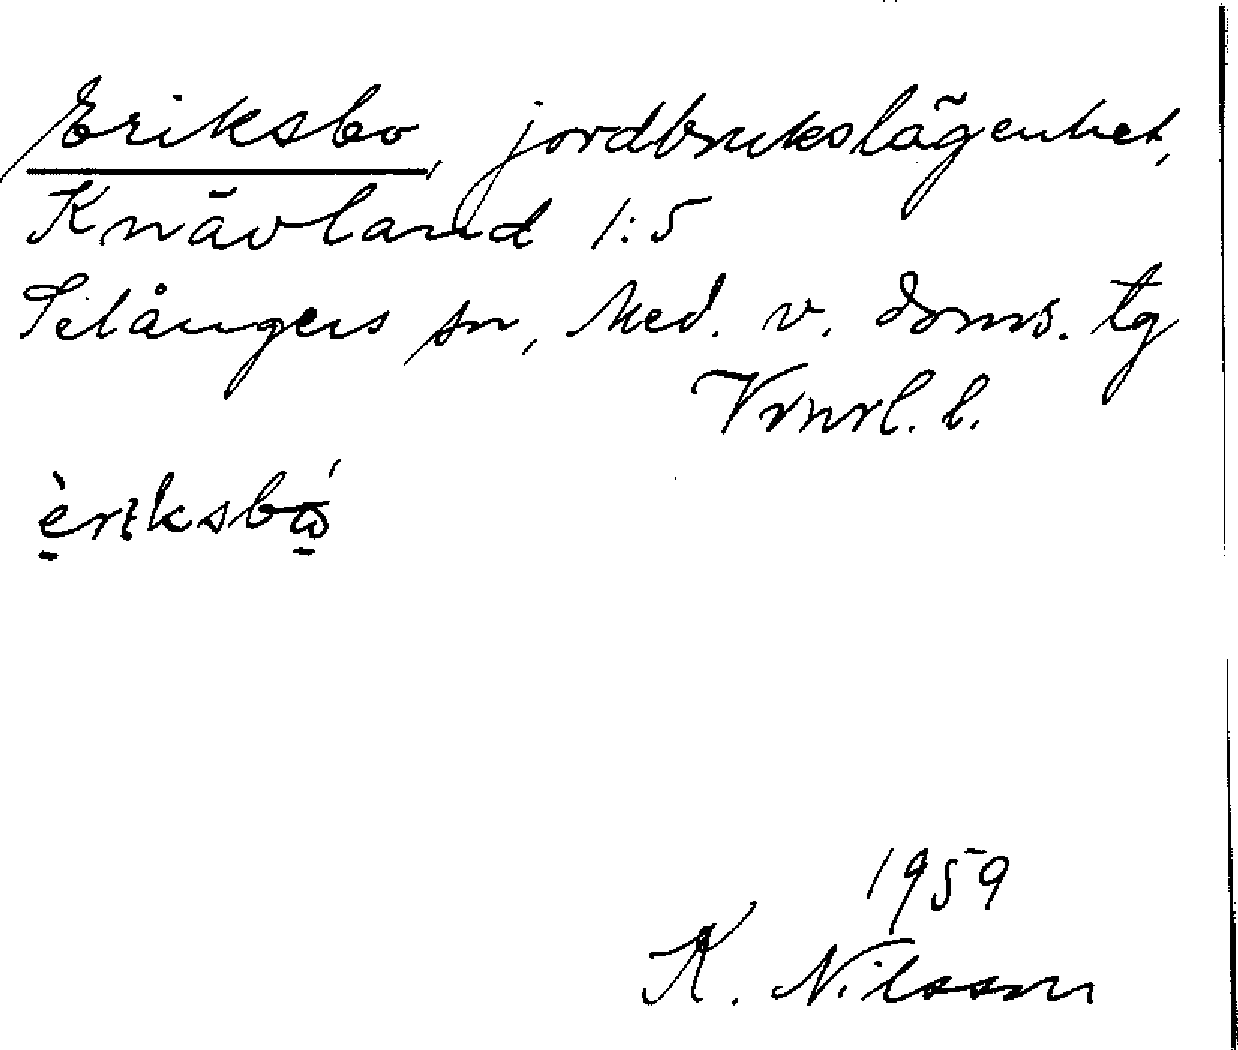 Eriksbo, jordbrukslägenhet,
Knävland 1:5
Selångers sn, Med. v. doms. tg
Vrnrl. l.
èriksbώ
1959
K. Nilsson